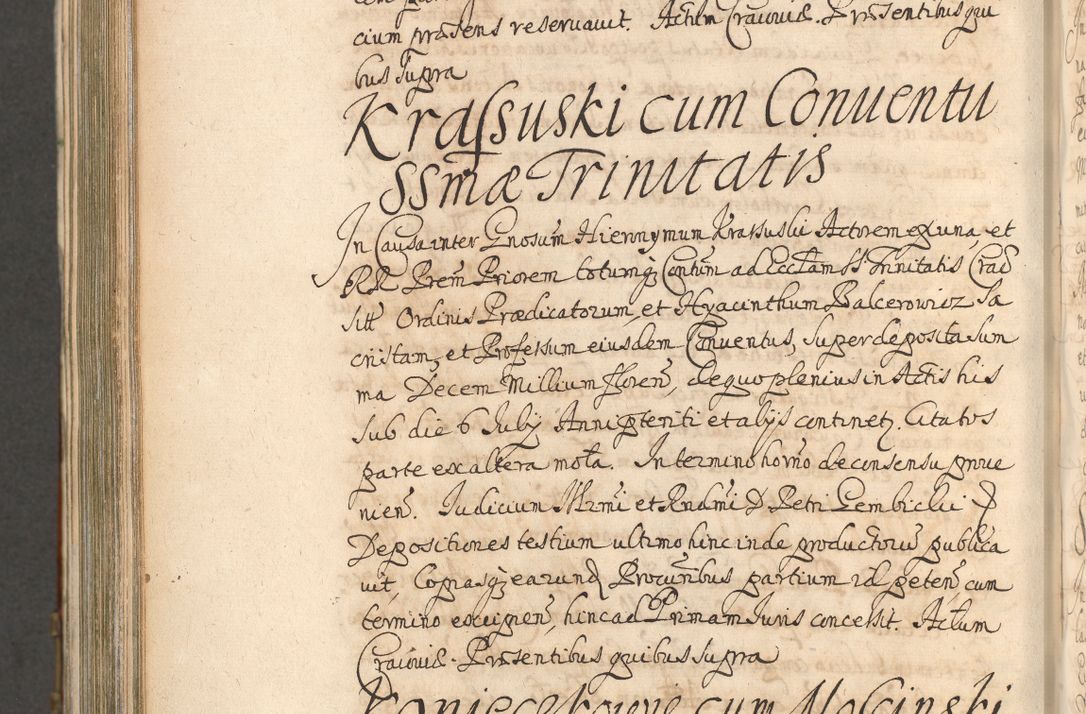 cium præsens reseruauit. Actum Cracouiæ. Præsentibus qui
bus supra
Krassuski cum Conuentu
SSmæ Trinitatis
In Causa inter Gnosum Hieronymum Krassuski Actorem ex una, et
RR Prem Priorem totumq Contum ad Eccłam SS Trinitatis Crac
sitt Ordinis Prædicatorum, et Hyacinthum Balcerowicz Sa
cristam, et Professum eiusdem Conuentus, super deposita sum
ma Decem Millium floren, de quo plenius in Actis his
sub die 6 July Anni pteriti et alijs continetz. Citatos
parte ex altera mota. In termino horno de consensu proue
nien. Iudicium Illrmi et Rndmi D Petri Gembicki D
Depositiones testium ultimo hinc inde productoru publica
uit, Copiasq earund Procuribus partium id peten cum
termino excipien, hinc ad Primam Iuris concessit. Actum
Cracouiæ. Præsentibus quibus supra
cum